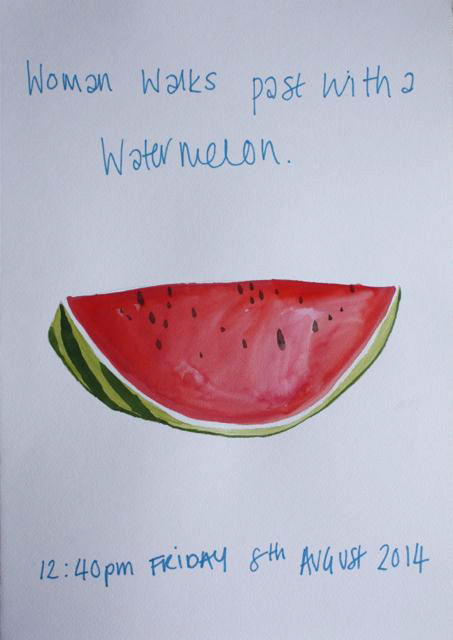 Woman Walks past with a
Watermelon.
12:40pm FRIDAY 8th AUGUST 2014